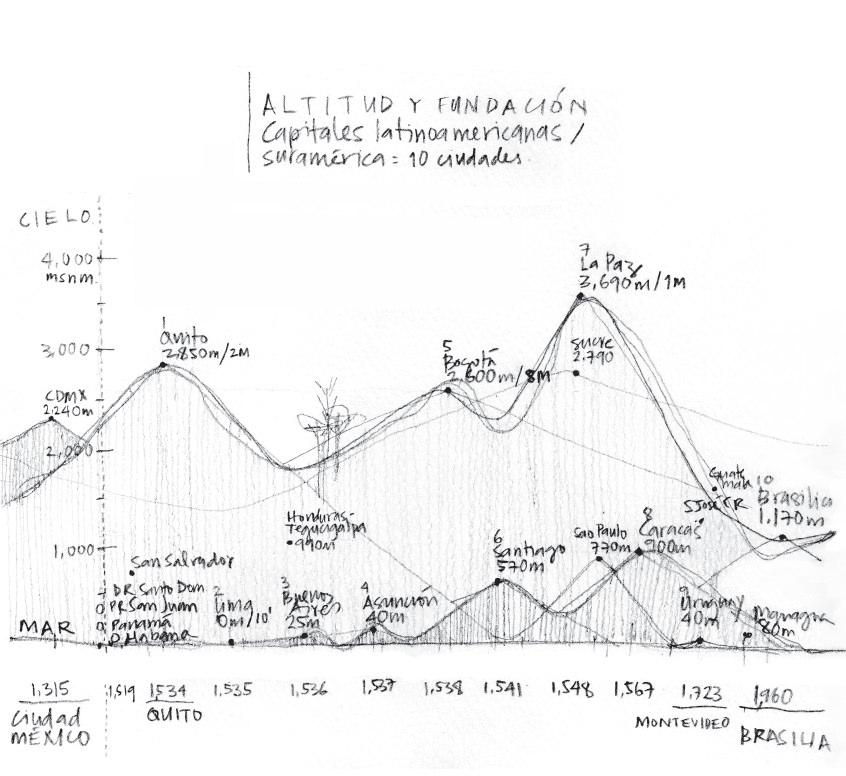 ALTITUD Y FUNDACIÓN
Capitales latinoamericanas /
suramérica = 10 ciudades.
CIELO
4,000
msnm.
3,000
2,000
1,000
MAR
CDMX
2.240m
1
Quito
2.850m/2M
5
Bogotá
2,600m/8M
7
La Paz
3,690m/1M
Sucre
2.790
Honduras-
Tegucigalpa
990m
San Salvador
DR Santo Dom
PR San Juan
Panamá
D. Habana
2
Lima
0m/10'
3
Buenos
Aires
25m
4
Asunción
40m
6
Santiago
570m
Sao Paulo
770m
8
Caracas
900m
Guate
mala
S José CR
10
Brasilia
1.170m
9
Uruguay
40m
Managua
80m
1,315
Ciudad
MÉXICO
1,519
1534
QUITO
1,535
1,536
1,537
1,538
1,541
1,548
1,567
1,723
MONTEVIDEO
1,960
BRASILIA